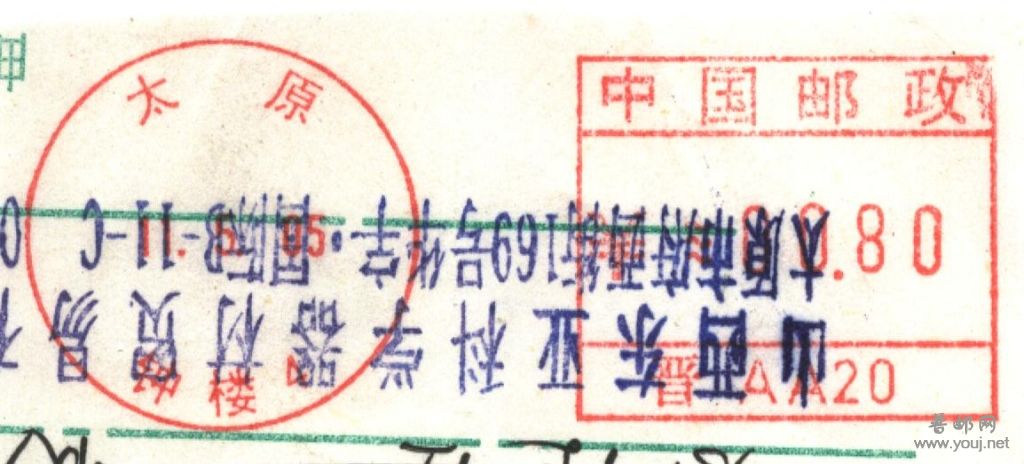 太原
楼
中国邮政
0.80
晋 AA20
山西东亚科学器材贸易
太原市府西街169号华宇·国际B-11-C
晋邮网
www.youj.net